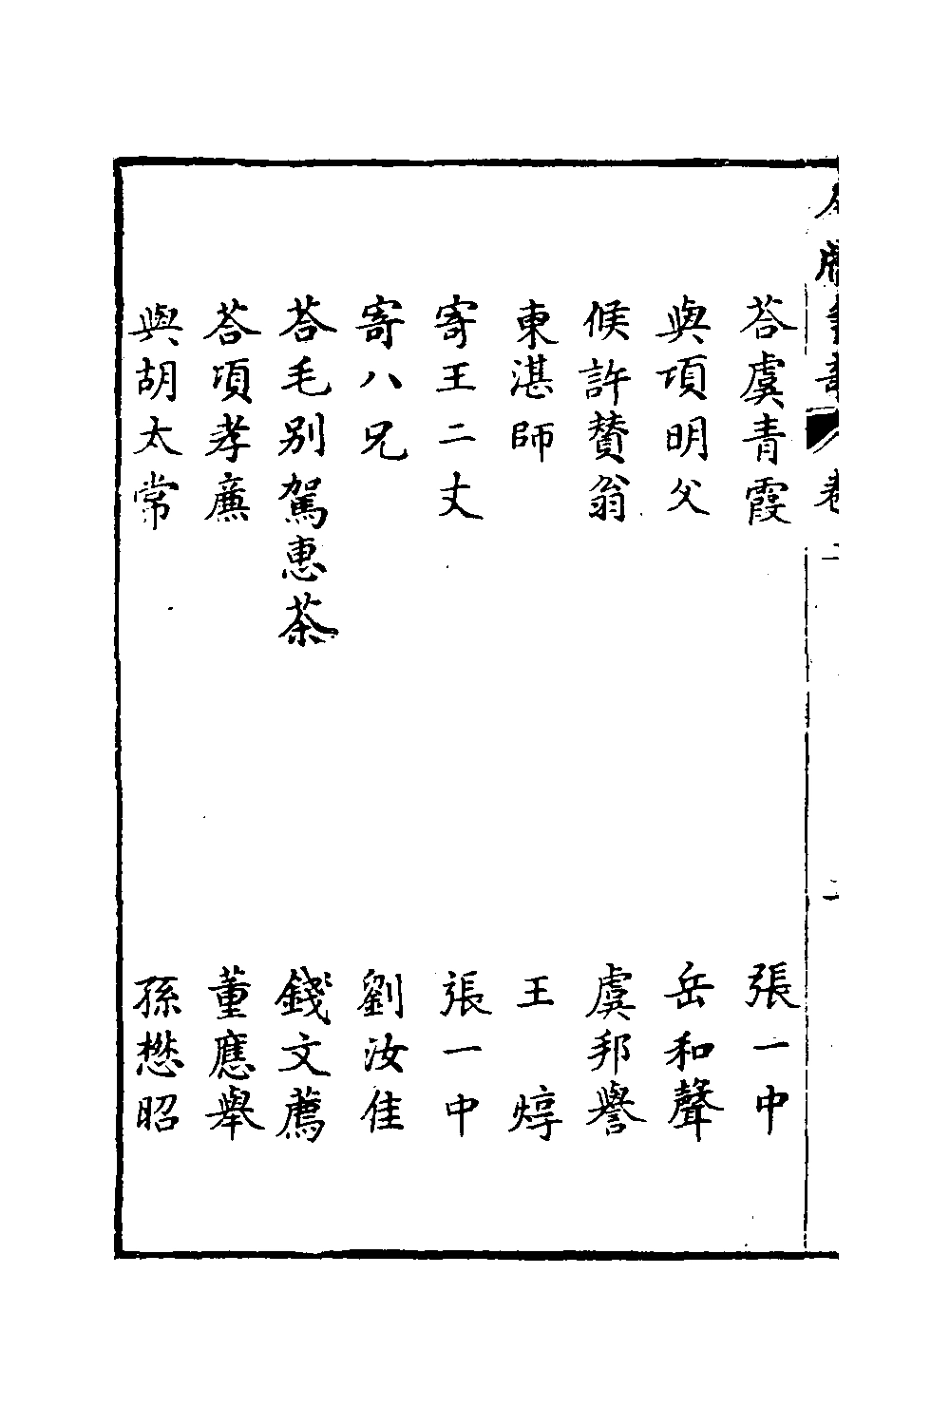 荅虞青霞　張一中
與項明父　岳和聲
候許賛翁　虞邦譽
東湛師　王焞
寄王二丈　張一中
寄八兄　劉汝佳
荅毛別駕惠茶　錢文薦
荅項孝廉　董應舉
與胡太常　孫懋昭